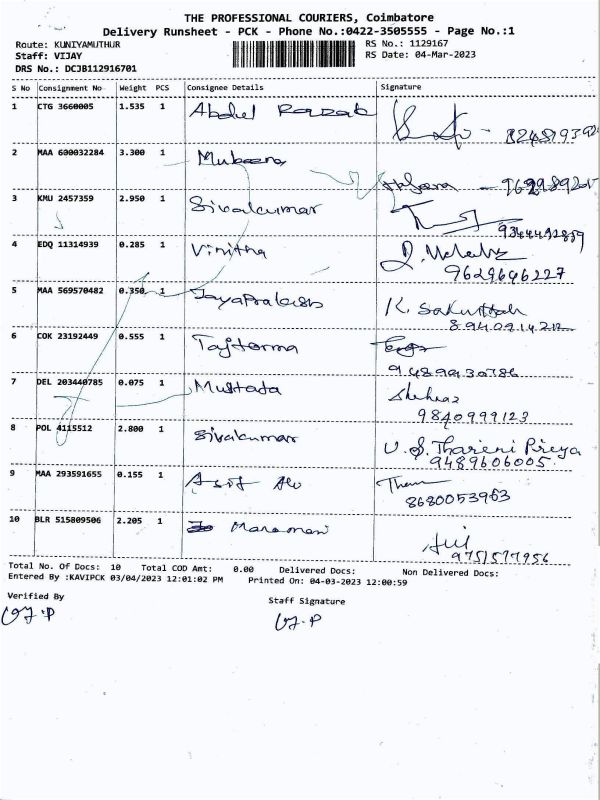 THE PROFESSIONAL COURIERS, Coimbatore
Delivery Runsheet - PCK - Phone No.:0422-3505555 - Page No.:1
Route: KUNIYAMUTHUR RS No.: 1129167
Staff: VIJAY RS Date: 04-Mar-2023
DRS No.: DCJB112916701
S No Consignment No Weight PCS Consignee Details Signature
1 CTG 3660005 1.535 1 Abdul Razak
2 MAA 600032284 3.300 1 Mubeena
3 KMU 2457359 2.950 1 Sivakumar
4 EDQ 11314939 0.285 1 Vinitha
9629646227
5 MAA 569570482 0.350 1 Jayaprakash
6 COK 23192449 0.555 1
7 DEL 203440785 0.075 1 Mustafa
9840999123
8 POL 4115512 2.800 1 Sivakumar U.S. Thareni Preya
9489606005
9 MAA 293591655 0.155 1
8680053963
10 BLR 515809506 2.205 1
9751577956
Total No. Of Docs: 10 Total COD Amt: 0.00 Delivered Docs: Non Delivered Docs:
Entered By :KAVIPCK 03/04/2023 12:01:02 PM Printed On: 04-03-2023 12:00:59
Verified By Staff Signature